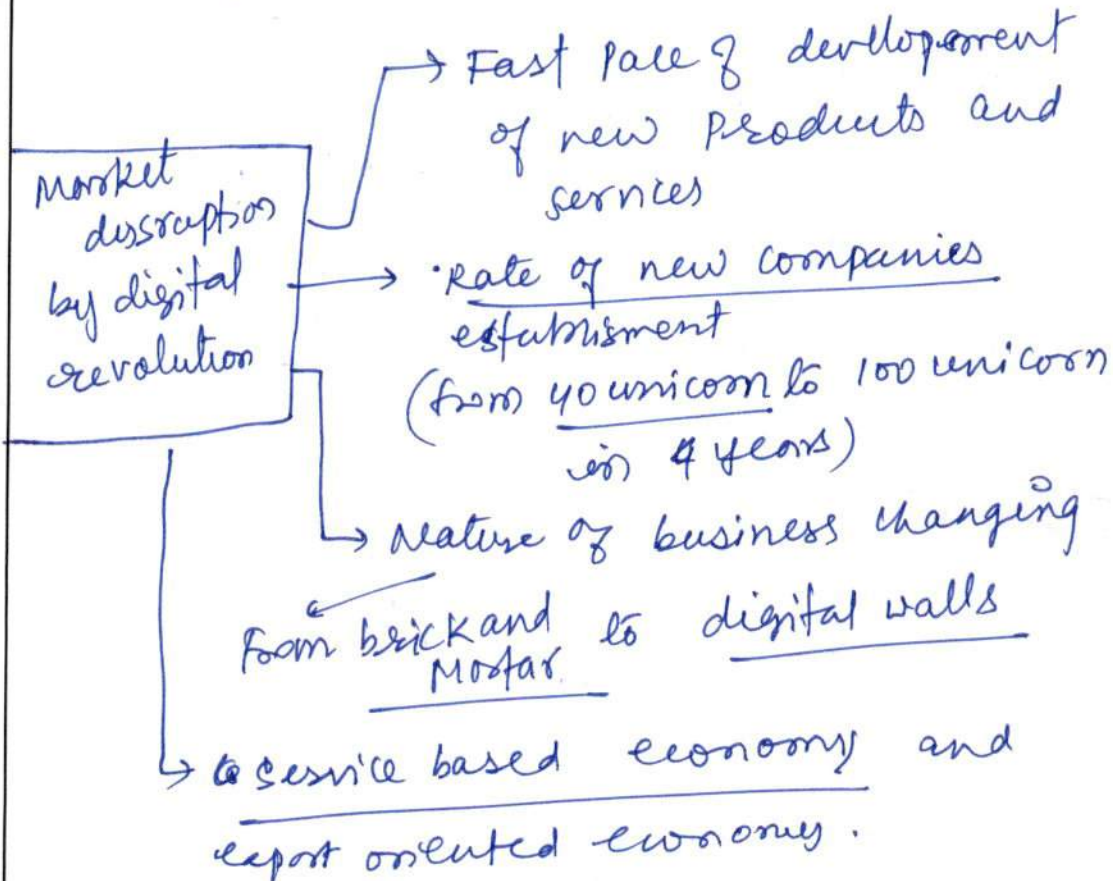 Market
dissruption
by digital
revolution
→ Fast Pace of development
of new Products and
services
→ Rate of new companies
establisment
(from 40 unicorn to 100 unicorn
in 4 years)
→ Nature of business changing
From brick and
Mortar to digital walls
→ service based economy and
export oriented economy.